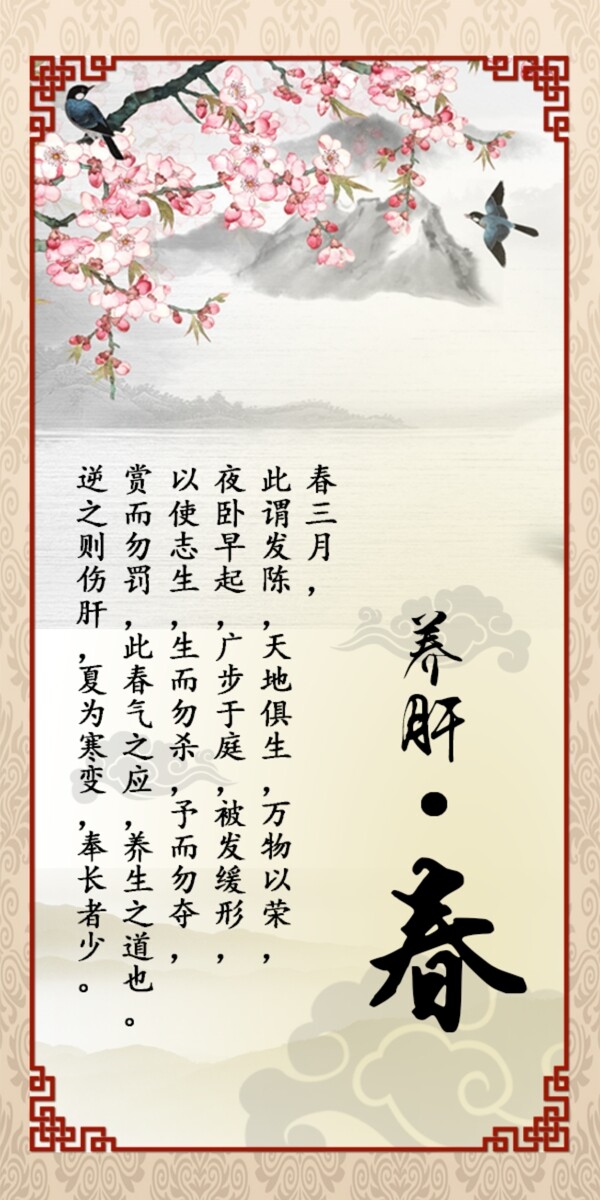 养肝·春
春三月，
此谓发陈，天地俱生，万物以荣，
夜卧早起，广步于庭，被发缓形，
以使志生，生而勿杀，予而勿夺，
赏而勿罚，此春气之应，养生之道也。
逆之则伤肝，夏为寒变，奉长者少。